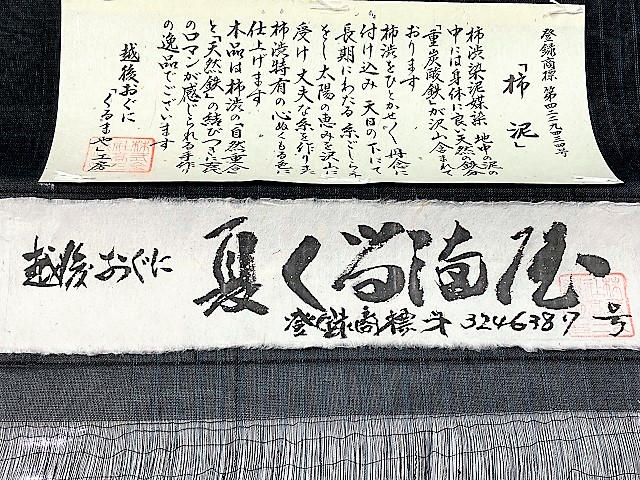 登録商標 第四二九四三四号
「柿泥」
柿渋染泥媒染 地中の泥の
中には身体に良い天然の鉄分
「重炭酸鉄」が沢山含まれて
おります
柿渋をひとかせづく 丹念に
付け込み 天日の下にて
長期にわたる 糸ごしらえ
をし 太陽の恵みを沢山に
受け 丈夫な糸を作りま
柿渋特有の心ぬくもる色に
仕上げます
本品は柿渋の「自然重合」
と「天然鉄」の結びつきに
のロマンが感じられる手作
の逸品でございます
越後おぐに
「くるまや」工房
越後おぐに 夏くるま屋
登録商標 第3246387号